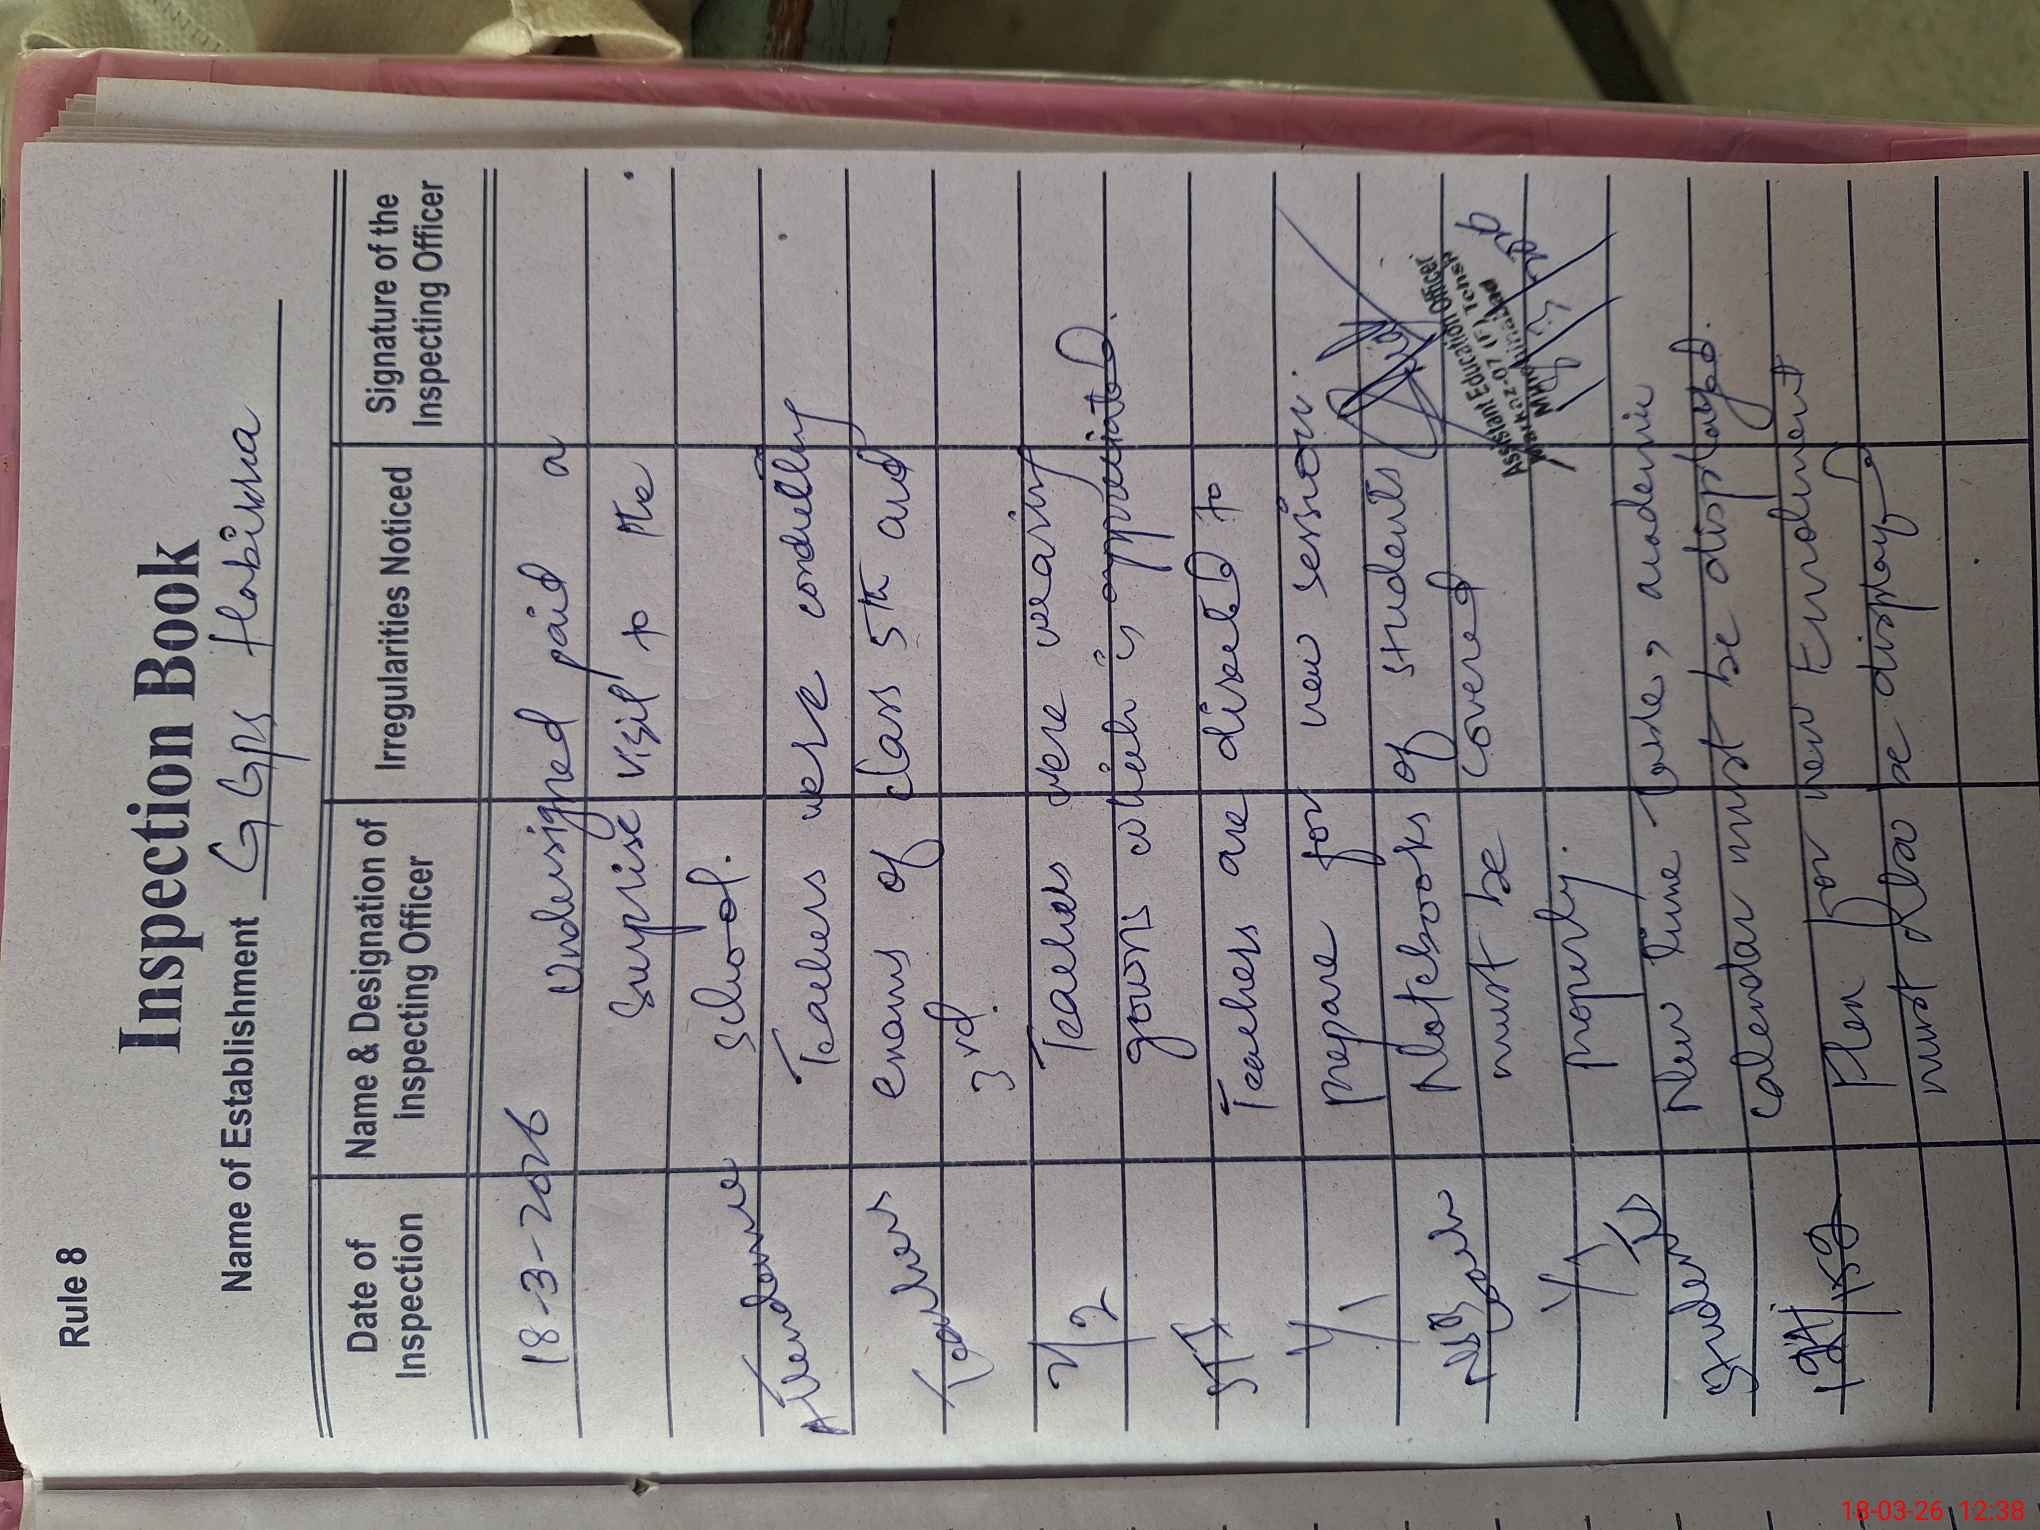 Rule 8
Inspection Book
Name of Establishment GGPS Habissa
Date of Inspection
Name & Designation of Inspecting Officer
Irregularities Noticed
Signature of the Inspecting Officer
18-3-2026
Undersigned paid a
surprise visit to the
school.
Attendance
Teachers were conducting
Teacher
exams of class 5th and
3rd.
2/2
Teachers were wearing
gowns which is appreciated.
Teachers are directed to
1/1
prepare for new session.
Notebooks of students
must be covered
1/1
properly.
New Time table, academic
Students
calendar must be displayed.
Plan for new Enrolment
must also be display
Assistant Education Officer
Markaz-07 (F) Tehsil
18-03-26 12:38